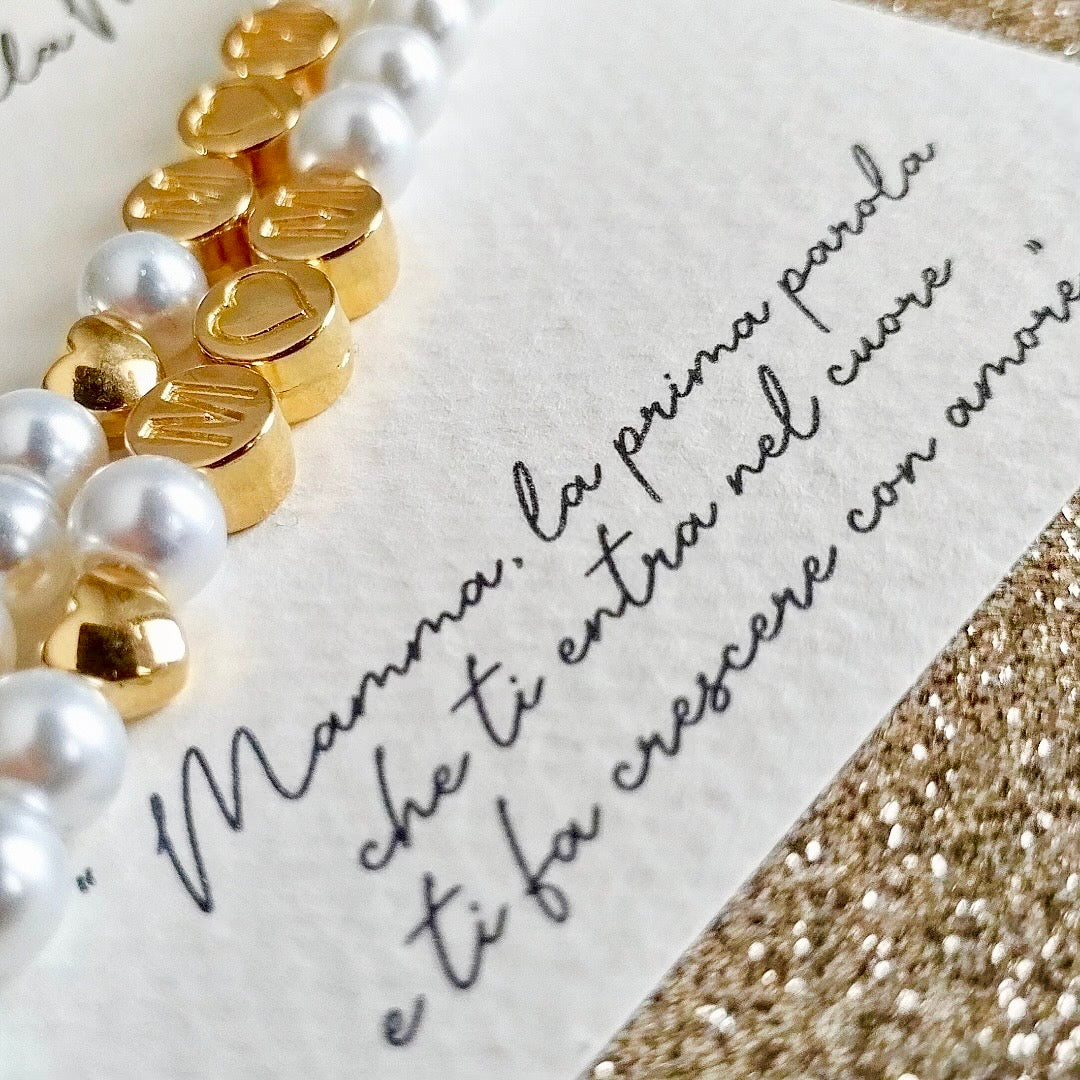 " Mamma, la prima parola
che ti entra nel cuore
e ti fa crescere con amore "
M
M
M